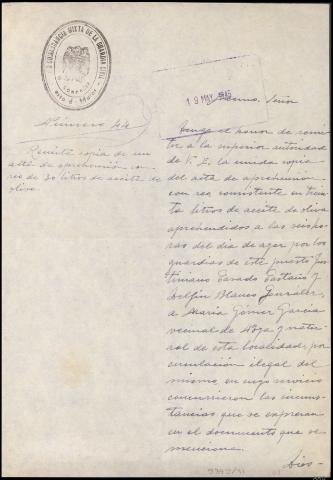 COMANDANCIA MIXTA DE LA GUARDIA CIVIL
19 MAY. 1945
Excmo. Señor
Número 44
Remite copia de un
acta de aprehensión con
reo de 30 litros de aceite de
oliva.
Tengo el honor de remi-
tir a la superior autoridad
de V. E. la unida copia
del acta de aprehensión
con reo consistente en trein-
ta litros de aceite de oliva
aprehendidos a las vispe-
ras del dia de ayer por los
guardias de este puesto Jus-
tiniano Parado Castaño y
Delfin Blanco Gonzalez,
a Maria Gómez Garcia
vecina de y natu-
ral de esta localidad, por
circulación ilegal del
mismo, en cuyo servicio
concurrieron las circuns-
tancias que se expresan
en el documento que se
menciona.
Dios-